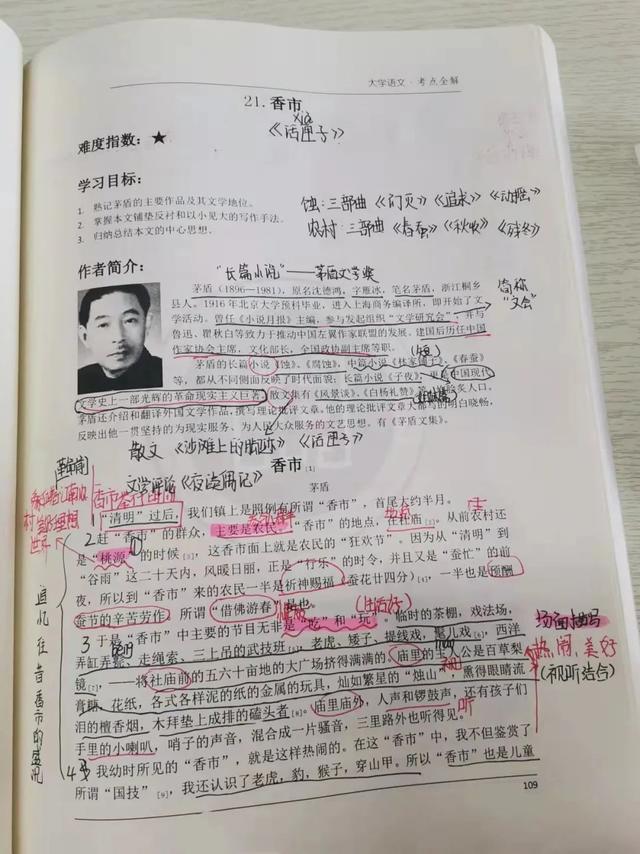 大学语文·考点全解
21. 香市
xiá
《话匣子》
难度指数：★
学习目标：
1. 熟记茅盾的主要作品及其文学地位。
2. 掌握本文铺垫反衬和以小见大的写作手法。
3. 归纳总结本文的中心思想。
蚀：三部曲《幻灭》《追求》《动摇》
农村：三部曲《春蚕》《秋收》《残冬》
作者简介：
"长篇小说"——茅盾文学奖
茅盾（1896—1981），原名沈德鸿，字雁冰，笔名茅盾，浙江桐乡
县人。1916年北京大学预科毕业，进入上海商务编译所，即开始了文
学活动。曾任《小说月报》主编，参与发起组织"文学研究会"，并与
鲁迅、瞿秋白等致力于推动中国左翼作家联盟的发展。建国后历任中国
作家协会主席，文化部长，全国政协副主席等职。
简称
"文会"
茅盾的长篇小说《蚀》、《腐蚀》，中篇小说《林家铺子》、《春蚕》
（短）
等，都从不同侧面反映了时代面貌；长篇小说《子夜》，更是中国现代
文学史上一部光辉的革命现实主义巨著；散文集有《风景谈》、《白杨礼赞》等，脍炙人口。
茅盾还介绍和翻译外国文学作品，撰写理论批评文章。他的理论批评文章大都写的明白晓畅，
反映出他一贯坚持的为现实服务、为人民大众服务的文艺思想。有《茅盾文集》。
散文《沙滩上的脚迹》《话匣子》
文学评论《夜读偶记》
香市 [1]
茅盾
"清明"过后，我们镇上照例有所谓"香市"，首尾大约半月。
2 赶"香市"的群众，主要是农民。"香市"的地点，在社庙[2]。从前农村还
是"桃源"的时候[3]，这香市面上就是农民的"狂欢节"。因为从"清明"到
"谷雨"这二十天内，风暖日丽，正是"行乐"的时令，并且又是"蚕忙"的前
夜，所以到"香市"来的农民一半是祈神赐福（蚕花廿四分）[4]，一半也是预酬
蚕节的辛苦劳作。所谓"借佛游春"是也。
（生活好）
3 于是"香市"中主要的节目无非是"吃"和"玩"。临时的茶棚，戏法场，
弄缸弄甏、走绳索、三上吊的武技班，老虎、矮子、提线戏，髦儿戏[6]，西洋
镜[7]，——将社庙前的五六十亩地的大广场挤得满满的。庙里的主人公是百草梨
膏糖、花纸，各式各样泥的纸的金属的玩具，灿如繁星的"烛山"，熏得眼睛流
泪的檀香烟，木拜垫上成排的磕头者[8]。庙里庙外，人声和锣鼓声，还有孩子们
手里的小喇叭，哨子的声音，混合成一片骚音，三里路外也听得见。
听
场面描写
热闹、美好
（视听结合）
4 我幼时所见的"香市"，就是这样热闹的。在这"香市"中，我不但鉴赏了
所谓"国技"[9]，我还认识了老虎，豹，猴子，穿山甲。所以"香市"也是儿童
追忆往昔香市的盛况
109